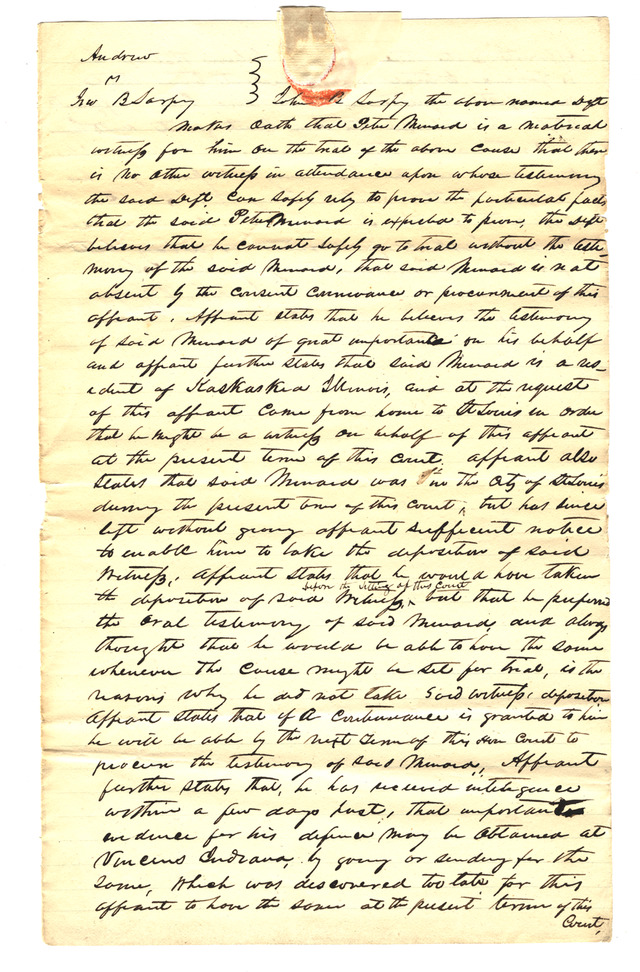 Andrew
vs
Jno B Sarpy } John B Sarpy the above named Deft
makes oath that Peter Menard is a material
witness for him on the trial of the above cause that there
is no other witness in attendance upon whose testimony
the said Deft can safely rely to prove the particular facts
that the said Peter Menard is expected to prove, the Deft
believes that he cannot safely go to trial without the testi-
mony of the said Menard, that said Menard is not
absent by the consent connivance or procurement of this
affiant. Affiant states that he believes the testimony
of said Menard of great importance on his behalf
and affiant further states that said Menard is a res-
ident of Kaskaskia Illinois, and at the request
of this affiant came from home to St Louis in order
that he might be a witness on behalf of this affiant
at the present term of this court, affiant also
states that said Menard was in the City of St Louis
during the present term of this Court, but has since
left without giving affiant sufficient notice
to enable him to take the deposition of said
Witness. Affiant states that he would have taken
before the sitting of this Court
th deposition of said Witness, but that he preferred
the oral testimony of said Menard, and always
thought that he would be able to have the same
whenever the Cause might be set for trial, is the
reasons why he did not take said witness' deposition
Affiant states that if a Continuance is granted to him
he will be able by the next term of this Hon Court to
procure the testimony of said Menard, Affiant
further states that, he has received intelegence
within a few days past, that important
evidence for his defence may be obtained at
Vincens Indiana, by going or sending for the
same, which was discovered too late for this
affiant to have the same at the present term of this
Court,